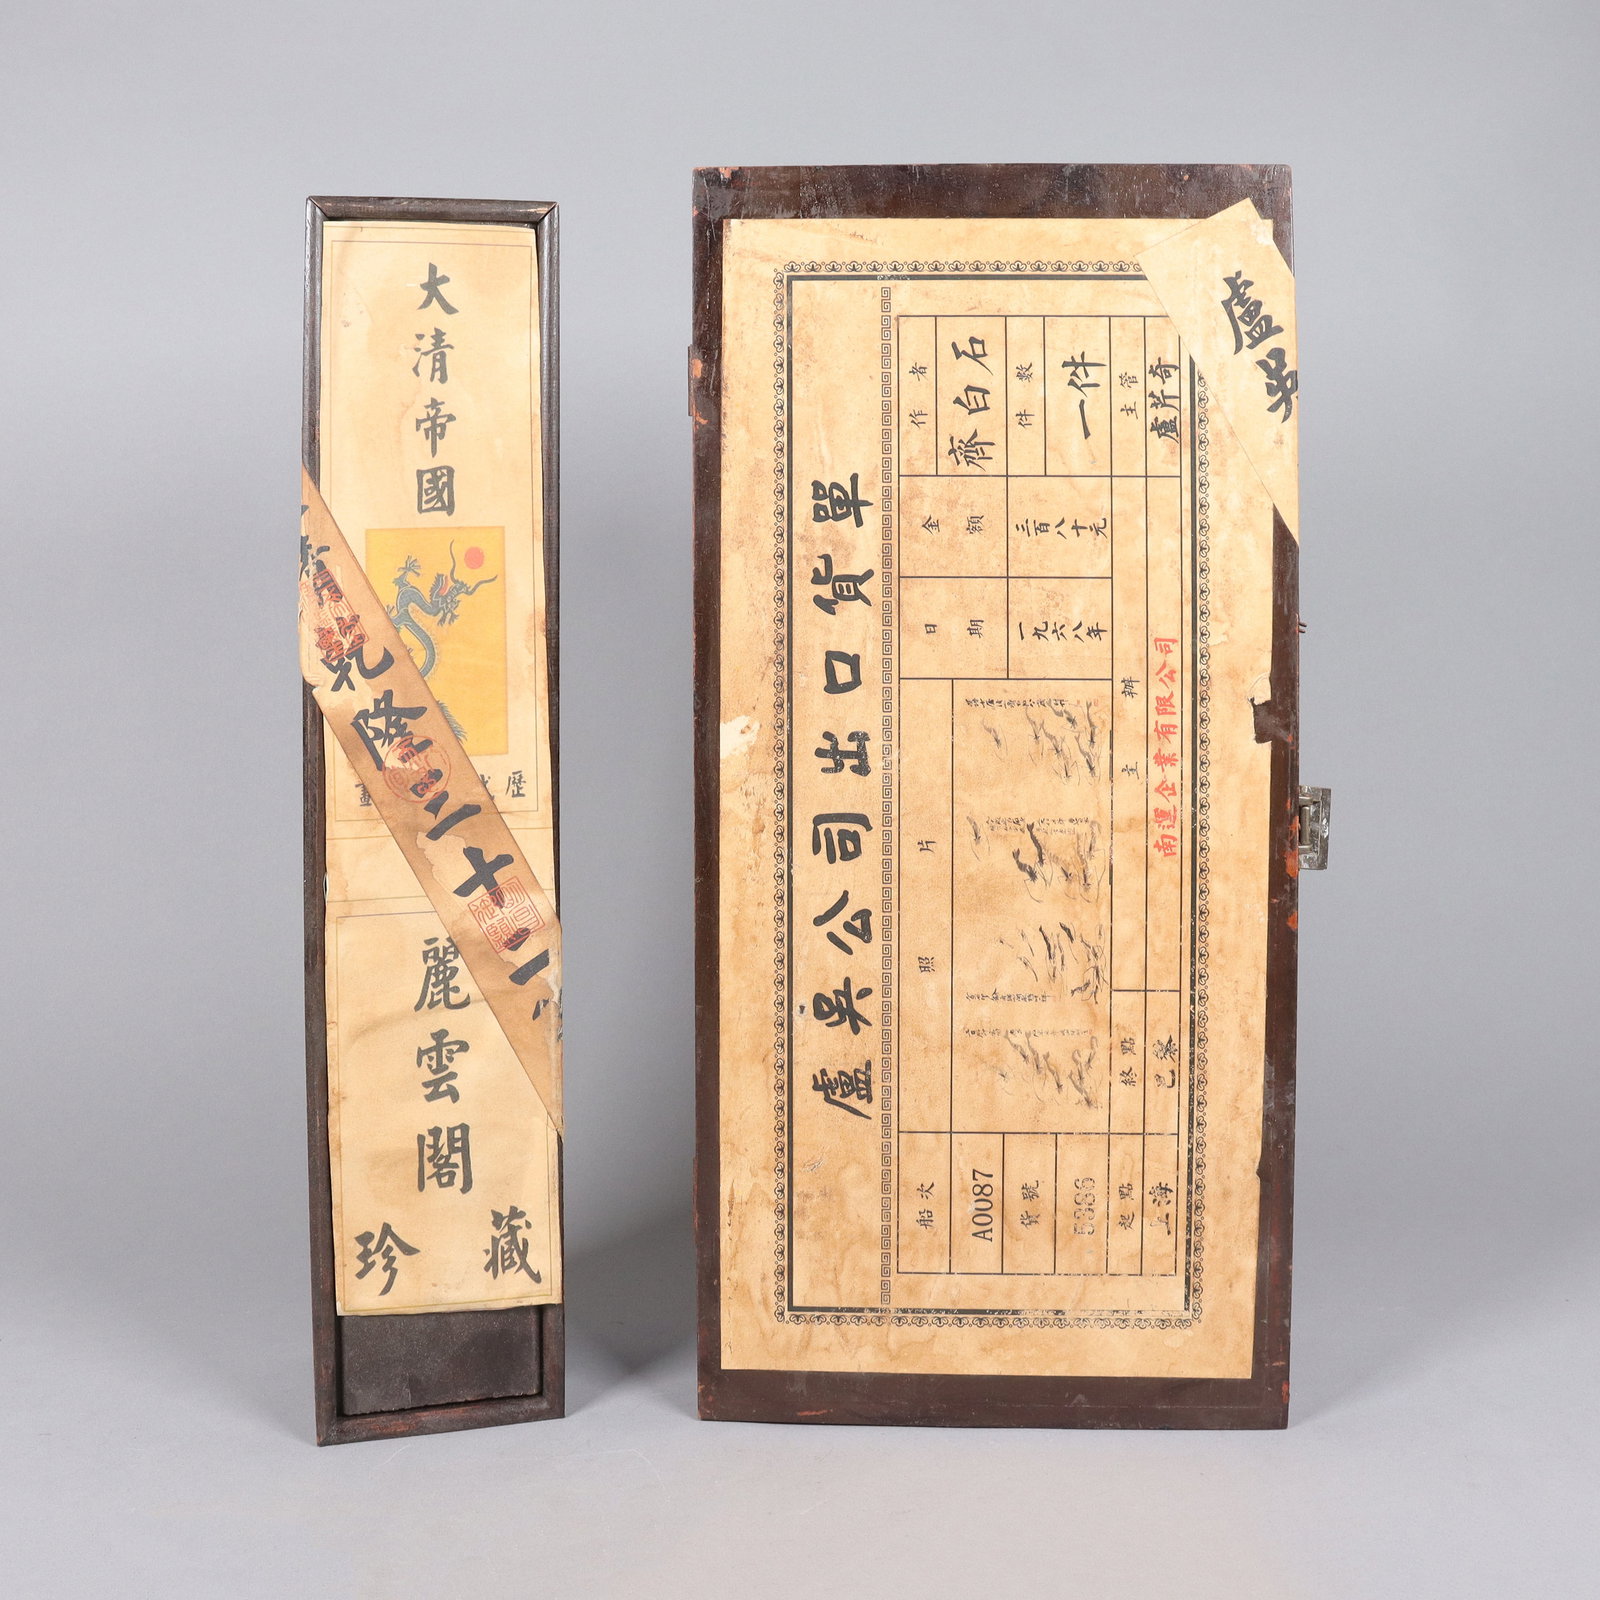 大清帝國
歷
畫
乾隆三十二
麗雲閣
珍藏
盧吳公司出口貨單
作者
齊白石
件數
一件
主管
盧芹奇
金額
三百八十元
日期
一九六八年
主辦
南運企業有限公司
照片
終點
巴黎
船次
A0087
貨號
5386
起點
上海
盧吳